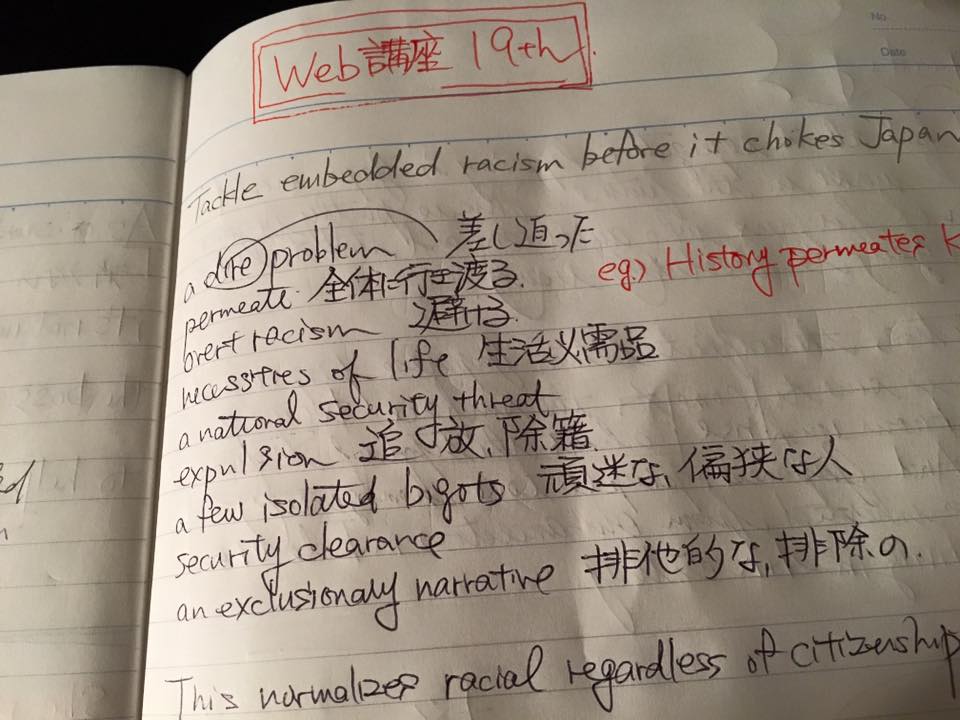 No
Date
Web講座 19th.
Tackle embedded racism before it chokes Japan
a dire problem 差し迫った
permeate 全体に行き渡る. eg.) History permeates K
overt racism 避ける.
necessities of life 生活必需品
a national security threat
expulsion 追放、除籍
a few isolated bigots 頑迷な、偏狭な人
security clearance
an exclusionaly narrative 排他的な、排除の.
This normalizes racial regardless of citizenship